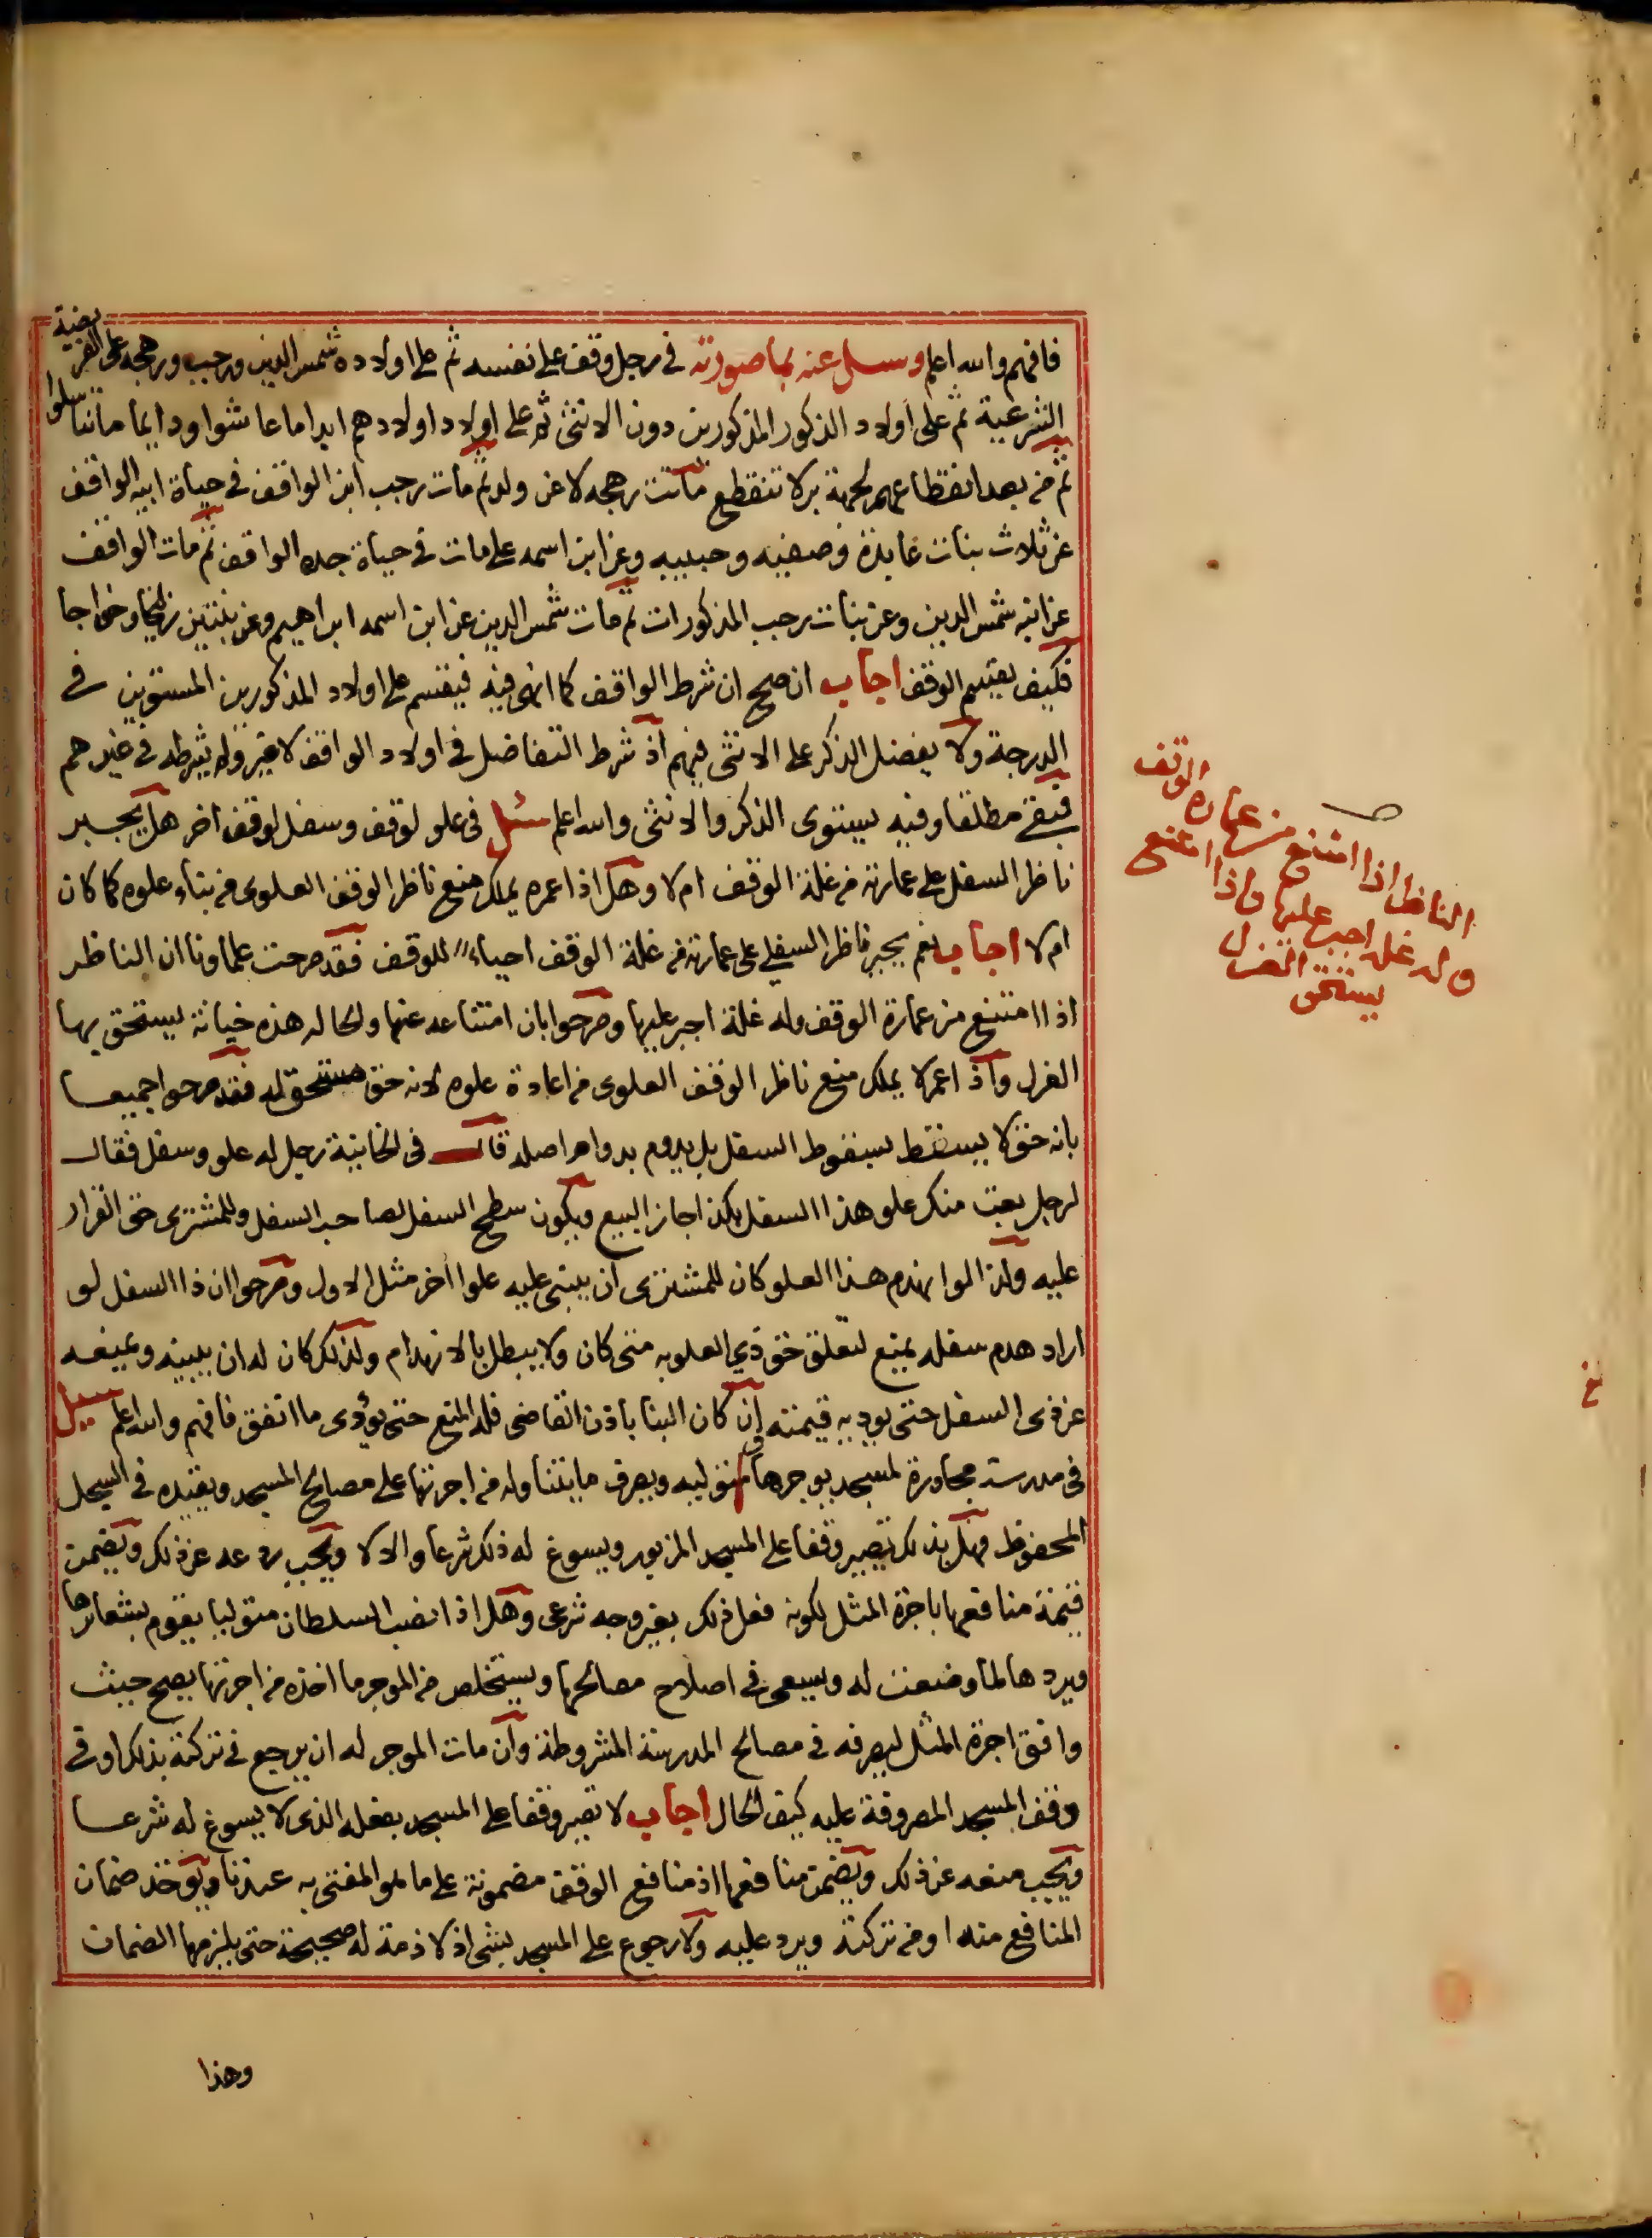 فافهم والله اعلم وسئل عنه بما صورته في رجل وقف على نفسه ثم على اولاده شمس الدين ورجب ورهجه على الفريضة
الشرعية ثم على اولاد الذكور المذكورين دون الانثى ثم على اولاد اولادهم ابدا ما عاشوا ودايما ما تناسلوا
ثم من بعد انقطاعهم لجهة بر لا تنقطع ماتت رهجه لا عن ولد ثم مات رجب ابن الواقف في حياة ابيه الواقف
عن ثلاث بنات عابدة وصفيه وحبيبه وعن ابن اسمه علي مات في حياة جده الواقف ثم مات الواقف
عن ابنه شمس الدين وعن بنات رجب المذكورات ثم مات شمس الدين عن ابن اسمه ابراهيم وعن بنتين زليخا وخواجا
فكيف يقسم الوقف اجاب ان صح ان شرط الواقف كما انهى فيه فيقسم على اولاد المذكورين المستوين في
الدرجة ولا يفضل الذكر على الانثى فيهم اذ شرط التفاضل في اولاد الواقف لا غير ولم يشرطه في غيرهم
فبقي مطلقا وفيه يستوى الذكر والانثى والله اعلم سئل فى علو لوقف وسفل لوقف اخر هل يجبر
ناظر السفل على عمارته من غلة الوقف ام لا وهل اذا عمره يملك منع ناظر الوقف العلوى من بناء علوه كما كان
ام لا اجاب نعم يجبر ناظر السفلى على عمارته من غلة الوقف احياء للوقف فقد صرحت علماونا ان الناظر
اذا امتنع من عمارة الوقف وله غلة اجبر عليها وصرحوا بان امتناعه عنها والحاله هذه خيانة يستحق بها
العزل واذا عمر لا يملك منع ناظر الوقف العلوى من اعادة علوه لانه حق مستحق له فقد صرحوا جميعا
بانه حق لا يسقط بسقوط السفل بل يدوم بدوام اصله قال فى الخانية رجل له علو وسفل فقال
لرجل بعت منك علو هذا السفل بكذا جاز البيع ويكون سطح السفل لصاحب السفل وللمشترى حق القرار
عليه ولذا لو انهدم هذا العلو كان للمشترى ان يبنى عليه علوا اخر مثل الاول وصرحوا ان ذا السفل لو
اراد هدم سفله يمنع لتعلق حق ذي العلو به متى كان ولا يبطل بالانهدام ولذلك كان له ان يبنيه ويمنعه
عن ذى السفل حتى يوديه قيمته وان كان البنا باذن القاضى فله المنع حتى يؤدى ما انفق فافهم والله اعلم سئل
فى مدرسة مجاورة لمسجد يوجرها متوليه ويصرف ما يتناوله من اجرتها على مصالح المسجد ويقيده في السجل
المحفوظ فهل بذلك تصير وقفا على المسجد المزبور ويسوغ له ذلك شرعا والا لا ويجب ردعه عن ذلك ويضمن
قيمة منافعها باجرة المثل لكونه فعل ذلك بغير وجه شرعى وهل اذا نصب السلطان متوليا يقوم بشعايرها
ويردها لما وضعت له ويسعى في اصلاح مصالحها ويستخلص من الموجر ما اخذه من اجرتها يصح حيث
وافق اجرة المثل ليصرفه في مصالح المدرسة المشروطة وان مات الموجر له ان يرجع في تركته بذلك او في
وقف المسجد المصروفة عليه كيف الحال اجاب لا تصير وقفا على المسجد بفعله الذى لا يسوغ له شرعا
ويجب منعه عن ذلك ويضمن منافعها اذ منافع الوقف مضمونة على ما هو المفتى به عندنا ويوخذ ضمان
المنافع منه او من تركته ويرد عليه ولا رجوع على المسجد بشى اذ لا ذمة له صحيحة حتى يلزمها الضمان
وهذا
الناظر اذا امتنع من عمارة الوقف
وله غلة اجبر عليها واذا امتنع
يستحق العزل